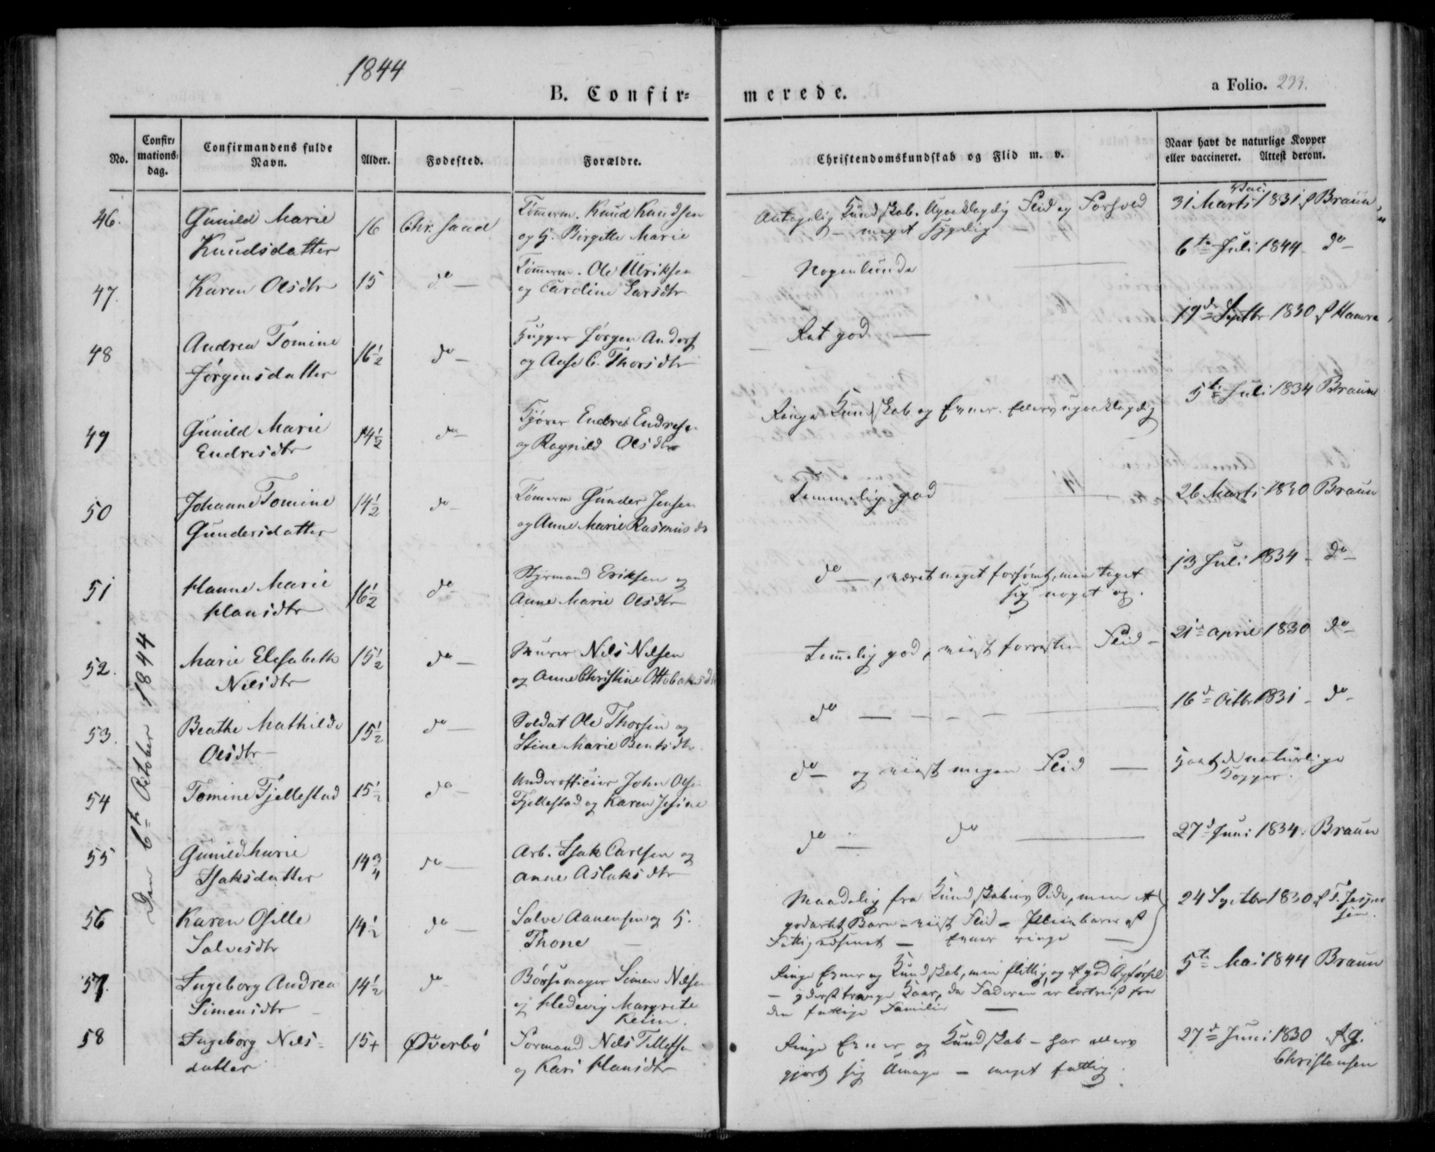 1844
B. Confir=
merede.
a Folio. 233.
No.
Confir=
mations=
dag.
Confirmandens fulde
Navn.
Alder.
Fødested.
Forældre.
Christendomskundskab og Flid m. v.
Naar havt de naturlige Kopper
eller vaccineret. Attest derom.
Den 6te October 1844
46.
Gunild Marie
Knudsdatter
16
Chr.sand
Tømerm. Knud Knudsen
og H. Birgitte Marie
Antagelig Kundskab. Upaaklagelig Flid og Forhold
– meget sygelig
31 Marts 1831 Braun
47.
Karen Olsdtr
15
do
Tømerm. Ole Ulriksen
og Caroline Larsdtr
Nogenlunde
6te Juli 1844 do
48
Andrea Tomine
Jørgensdatter
16½
do
Jørgen Anders
og Aase C. Thorsdtr
Ret god
19de Septbr 1830
49
Gunild Marie
Endresdtr
14½
do
Endre Endresen
og Ragnild Olsdtr
Ringe Kundskab og Evner. Ellers upaaklagelig
5te Juli 1834 Braun
50
Johanne Tomine
Gundersdatter
14½
do
Tømerm Gunder Jensen
og Anne Marie Rasmusdr
Temmelig god
26 Marts 1830 Braun
51
Hanne Marie
Hansdtr
16½
do
Styrmand Eriksen og
Anne Marie Olsdtr
do –, været meget forsømt, men taget
sig noget op.
13 Juli 1834 – do
52.
Marie Elisabeth
Nilsdtr
15½
do
Nils Nilsen
og Anne Christine
Temelig god, viist Flid
21de April 1830 do
53.
Beathe Mathilde
Olsdtr
15½
do
Soldat Ole Thorsen og
Stine Marie Bentsdtr.
do
16de Octbr 1831 – do
54
Tomine Fjellestad
15½
do
Underofficier John Olsen
Fjellestad og Karen Josine
do og viist megen Flid
havt de naturlige
Kopper.
55
Gunild Marie
Isaksdatter
14¾
do
Arb. Isak Carlsen og
Anne Aslaksdtr
do do
27de Juni 1834. Braun
56
Karen Osille
Salvesdtr
14½
do
Salve Aanensen og H.
Thone
Maadelig fra Kundskabens Side, men et
godartet Barn – viist Flid –
– Evner ringe
24 Septbr 1830
57.
Ingeborg Andrea
Simensdtr
14½
do
Bøssemager Simen Nilsen
og Hedevig Margrete
Keim.
Ringe Evner og Kundskab, men flittig og af god Opførsel
– yderst trange Kaar, da Faderen er bortreist fra
den fattige Familie
5te Mai 1844 Braun
58
Ingeborg Nils-
datter
15+
Øverbø
Formand Nils Tellefsen
og Kari Hansdtr
Ringe Evner og Kundskab – har ellers
gjort sig Umage – meget fattig.
27de Juni 1830
Christensen